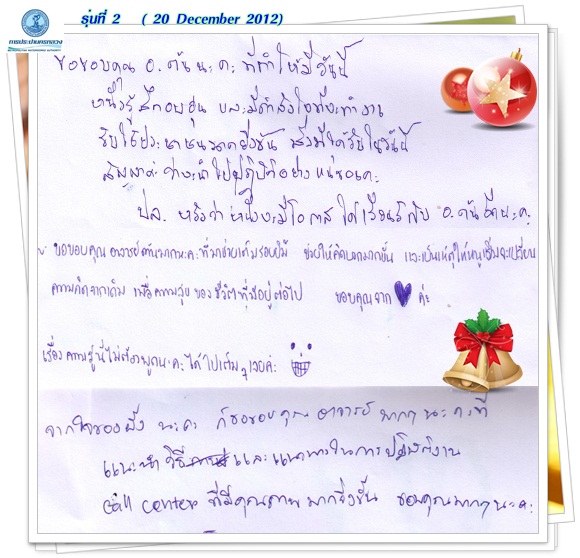 การประปานครหลวง
รุ่นที่ 2 ( 20 December 2012)
ขอขอบคุณ อ.ต้นนะคะ ที่ทำให้มีวันนี้
หนูรู้สึกอบอุ่น และมีกำลังใจที่จะทำงาน
รับใช้ประชาชนมากยิ่งขึ้น สิ่งที่ได้รับในวันนี้
สัญญาค่ะ ว่าจะนำไปปฏิบัติอย่างแน่นอนค่ะ
ปล. หวังว่า จะมีโอกาส ได้เรียนรู้กับ อ.ต้นอีกนะคะ
ขอขอบคุณ อาจารย์ต้นมากนะคะที่มาช่วยเติมรอยยิ้ม ช่วยให้คิดบวกมากขึ้น และเป็นแรงให้หนูเริ่มจะเปลี่ยน
ความคิดจากเดิม เพื่อความสุข ของชีวิตที่มีอยู่ต่อไป ขอบคุณจาก ค่ะ
เรื่องความรู้นี้ไม่ต้องพูดนะคะ ได้ไปเต็มๆเลยค่ะ
จากใจของผึ้ง นะคะ ก็ขอขอบคุณ อาจารย์ มากๆ นะคะที่
แนะนำ วิธี และแนวทางในการปฏิบัติงาน
call center ที่มีคุณภาพ มากยิ่งขึ้น ขอบคุณมากๆนะคะ